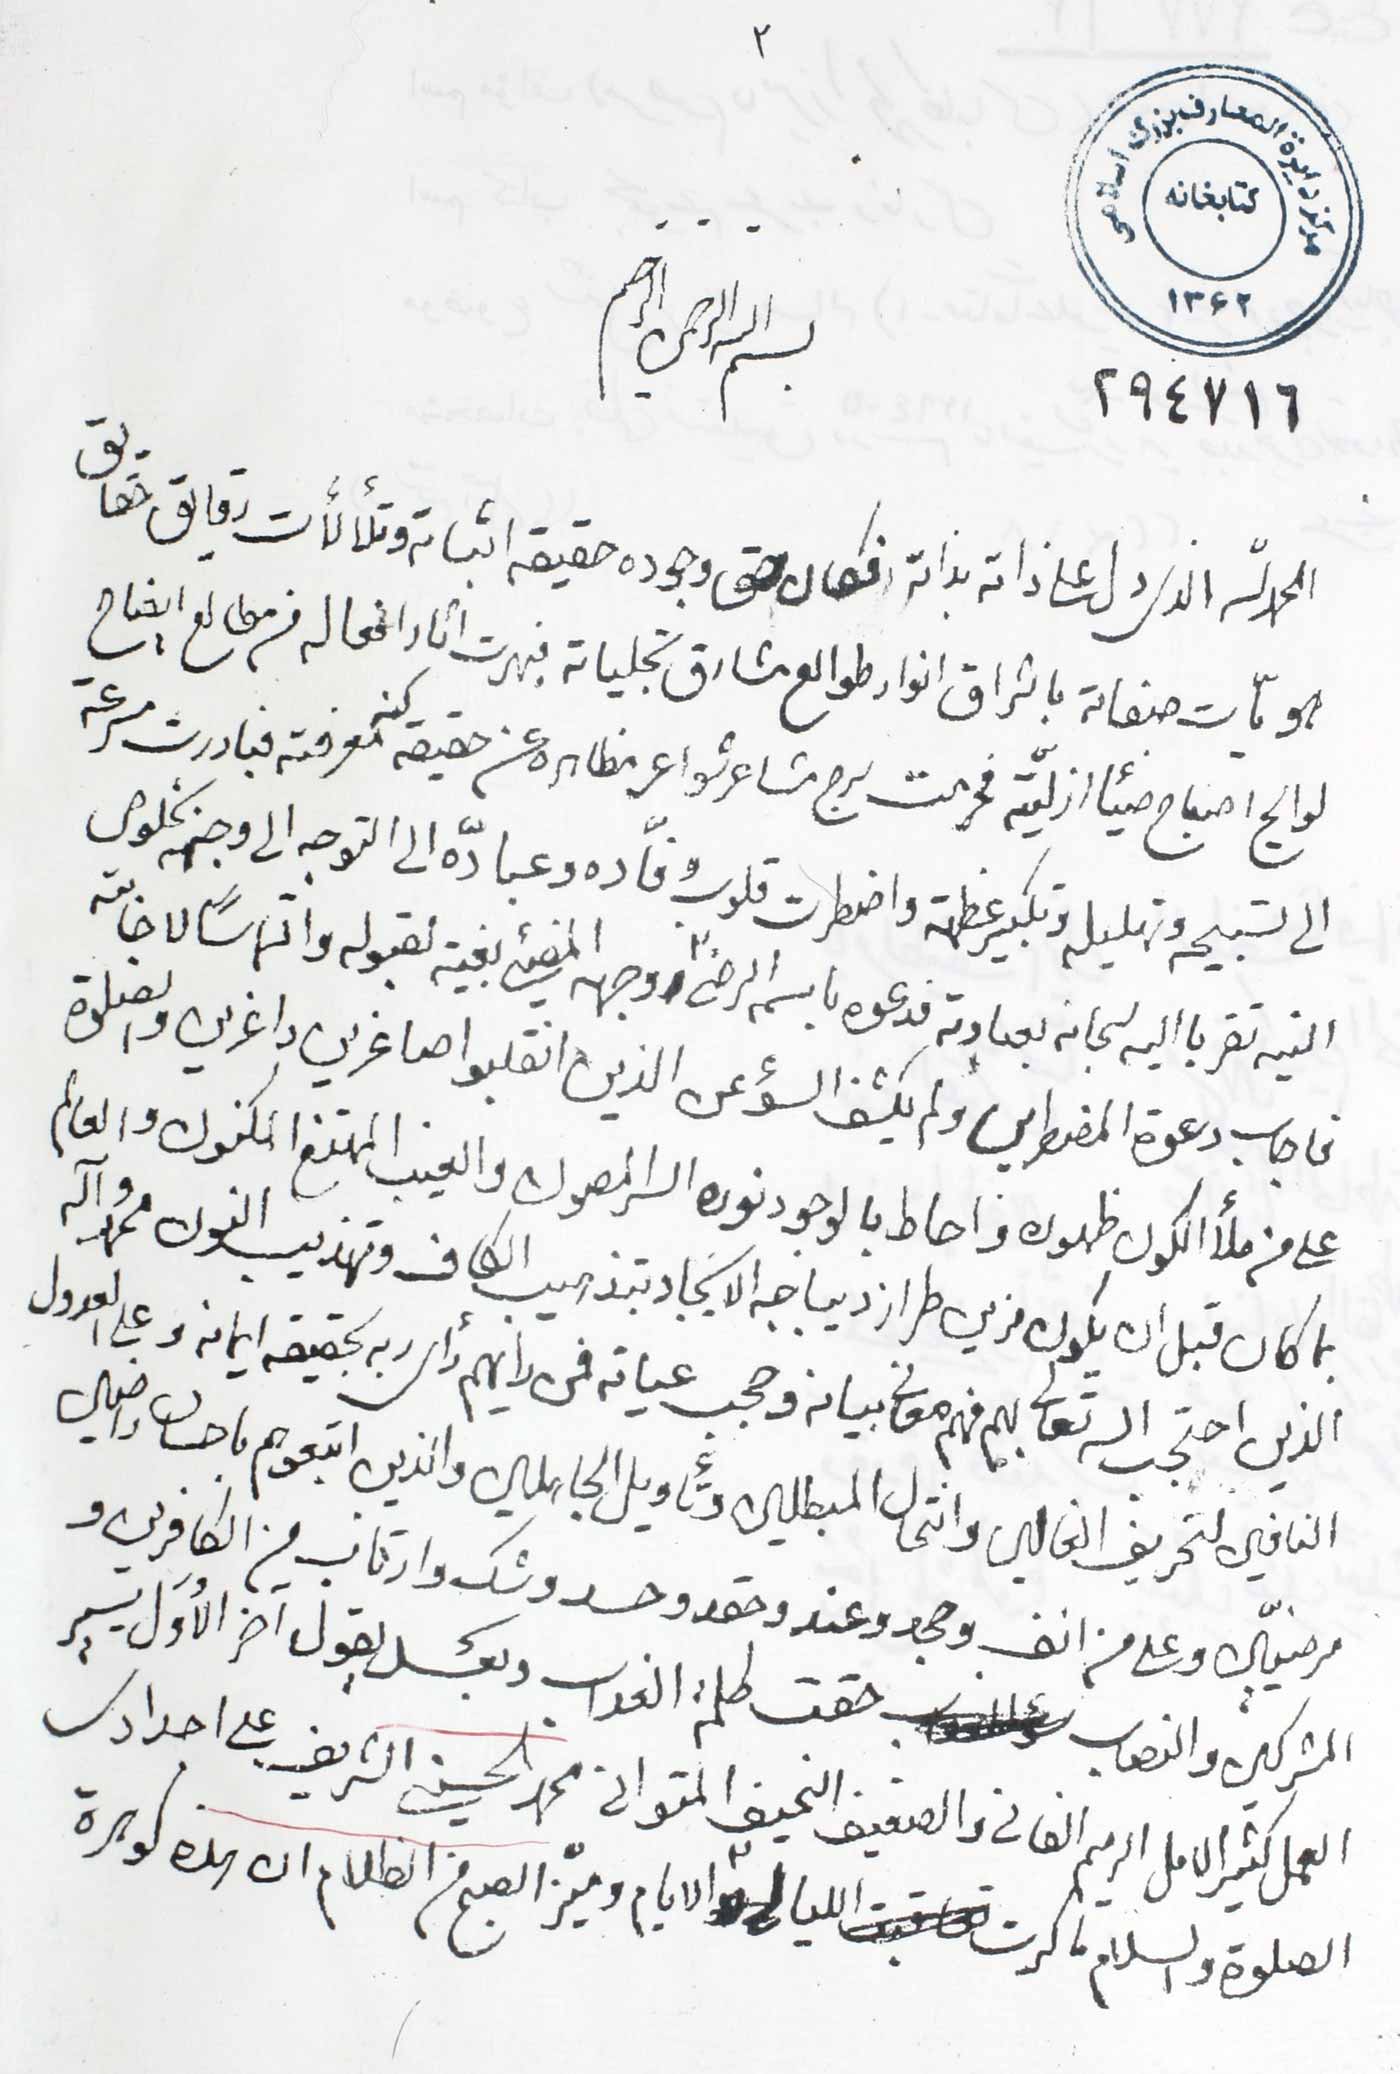 ٢
مرکز دایرة المعارف بزرگ اسلامی
کتابخانه
۱۳۶۲
٢٩٤٧١٦
بسم الله الرحمن الرحیم
الحمد لله الذی دل علی ذاته بذاته فکان حق وجوده حقیقه اثباته وتلألأت رقایق حقایق
هویّات صفاته باشراق انوار طوالع مشارق تجلیاته فبهرت آثار افعاله من مطالع ایضاح
لوایح اصباح ضیأ ازلیّته مشاعر شواعر مظاهره عن حقیقه کنه معرفته فبادرت مسرعة
الی تسبیحه وتهلیله وتکبیر عظمته واضطرت قلوب وفّاده وعبادّه الی التوجه الی وجهه بخلوص
النیه تقربا الیه سبحانه بعبادته فدعوه باسمه الرضی ووجهه المضیئ بغیة لقبوله والتماسًا لاجابته
فاجاب دعوة المضطرین ولم یکشف السؤ عن الذین انقلبوا صاغرین داغرین والصلوة
علی من ملأ الکون ظهوره واحاط بالوجود نوره السر المصون والغیب الممتنع المکنون والعالم
بما کان قبل ان یکون مزین طراز دیباجه الایجاد بتذهیب الکاف وتهذیب النون محمد وآله
الذین احتجب الله تعالی بهم فهم معانی بیانه وحجب عیانه فمن رایهم رأی ربه بحقیقه ایمانه وعلی العدول
النافین لتحریف الغالین وانتحال المبطلین وتأویل الجاهلین والذین اتبعوهم باحسان راضین
مرضیّین وعلی من انف وجحد وعند وحقد وحسد وشک وارتاب من الکافرین و
المشرکین والنصاب حقت کلمة العذاب وبعد یقول آخر الأول یسیر
العمل کثیر الامل الرمیم الفانی والضعیف النحیف المتوانی محمد الحسینی الشریف علی اجداده
الصلوة والسلام ما کرت اللیالی والایام ومیّز الصبح من الظلام ان هذه کوهرة